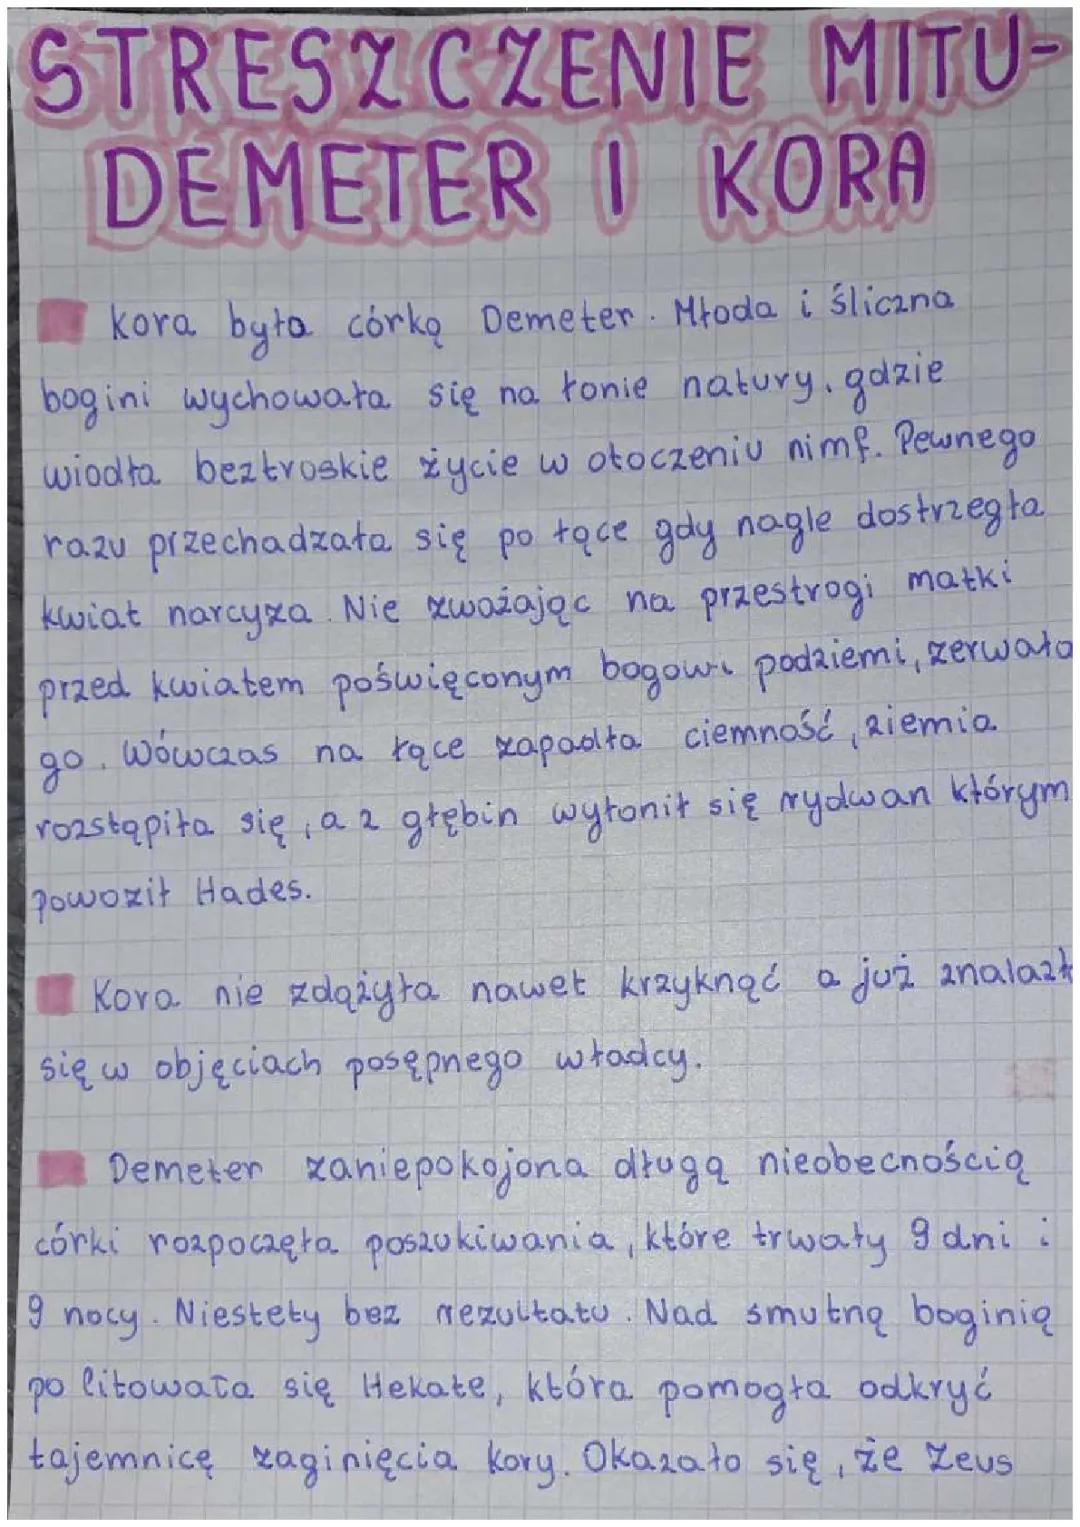 STRESZCZENIE MITU-
DEMETER I KORA
Kora była córką Demeter. Młoda i śliczna
bogini wychowała się na łonie natury, gdzie
wiodła beztroskie życie w otoczeniu nimf. Pewnego
razu przechadzała się po łące gdy nagle dostrzegła
kwiat narcyza. Nie zważając na przestrogi matki
przed kwiatem poświęconym bogowi podziemi, zerwała
go. Wówczas na łące zapadła ciemność, ziemia
rozstąpiła się, a z głębin wyłonił się rydwan którym
powoził Hades.
Kora nie zdążyła nawet krzyknąć a już znalazł
się w objęciach posępnego władcy.
Demeter zaniepokojona długą nieobecnością
córki rozpoczęła poszukiwania, które trwały 9 dni i
9 nocy. Niestety bez rezultatu. Nad smutną boginią
po litowała się Hekate, która pomogła odkryć
tajemnicę zaginięcia Kory. Okazało się, że Zeus